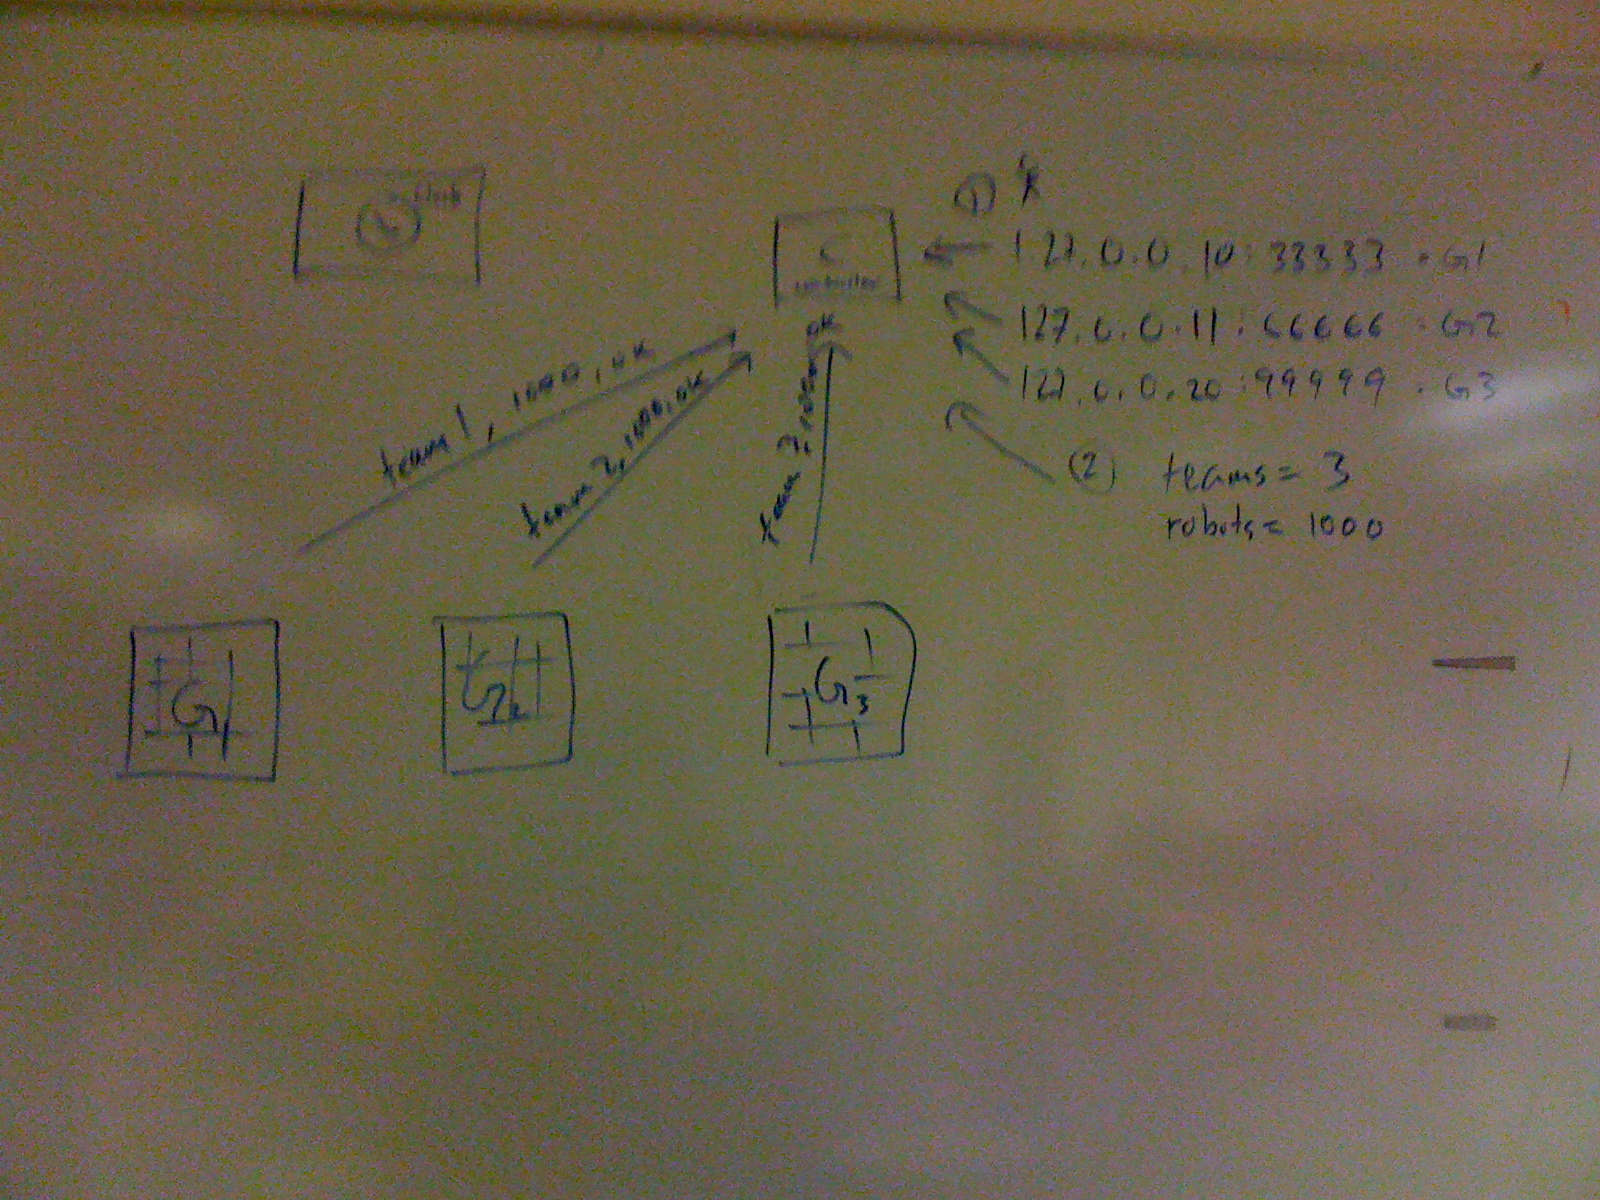 clock
(1) *
C
controller
127.0.0.10:33333 · G1
127.0.0.11:66666 · G2
127.0.0.20:99999 · G3
(2) teams = 3
robots = 1000
team 1, 1000, ok
team 2, 1000, ok
team 3, 1000, ok
G1
G2
G3